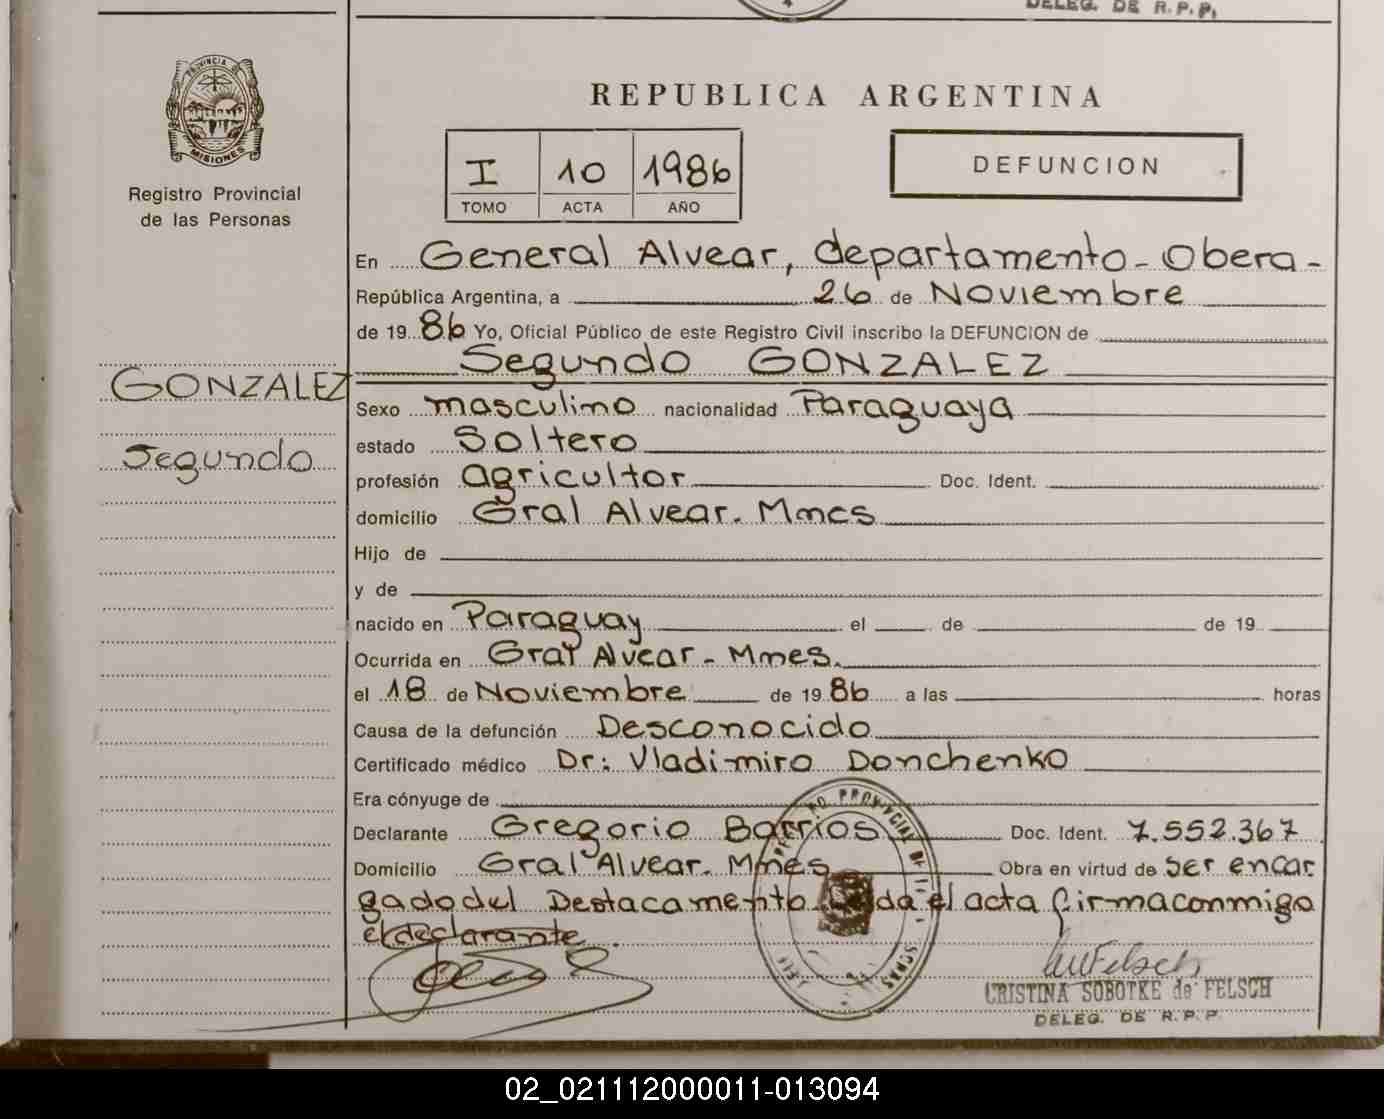 DELEG. DE R.P.P.
PROVINCIA DE
MISIONES
Registro Provincial
de las Personas
REPUBLICA ARGENTINA
I 10 1986
TOMO ACTA AÑO
DEFUNCION
En General Alvear, departamento - Obera -
República Argentina, a 26 de Noviembre
de 19 86 Yo, Oficial Público de este Registro Civil inscribo la DEFUNCION de
Segundo GONZALEZ
GONZALEZ
Segundo
Sexo masculino nacionalidad Paraguaya
estado Soltero
profesión agricultor Doc. Ident.
domicilio Gral Alvear. Mnes
Hijo de
y de
nacido en Paraguay el de de 19
Ocurrida en Gral Alvear - Mnes.
el 18 de Noviembre de 19 86 a las horas
Causa de la defunción Desconocido
Certificado médico Dr: Vladimiro Donchenko
Era cónyuge de
Declarante Gregorio Barrios Doc. Ident. 7.552.367
Domicilio Gral Alvear. Mnes Obra en virtud de ser encar
gado del Destacamento da el acta firma conmigo
el declarante.
CRISTINA SOBOTKE de FELSCH
DELEG. DE R.P.P.
02_021112000011-013094